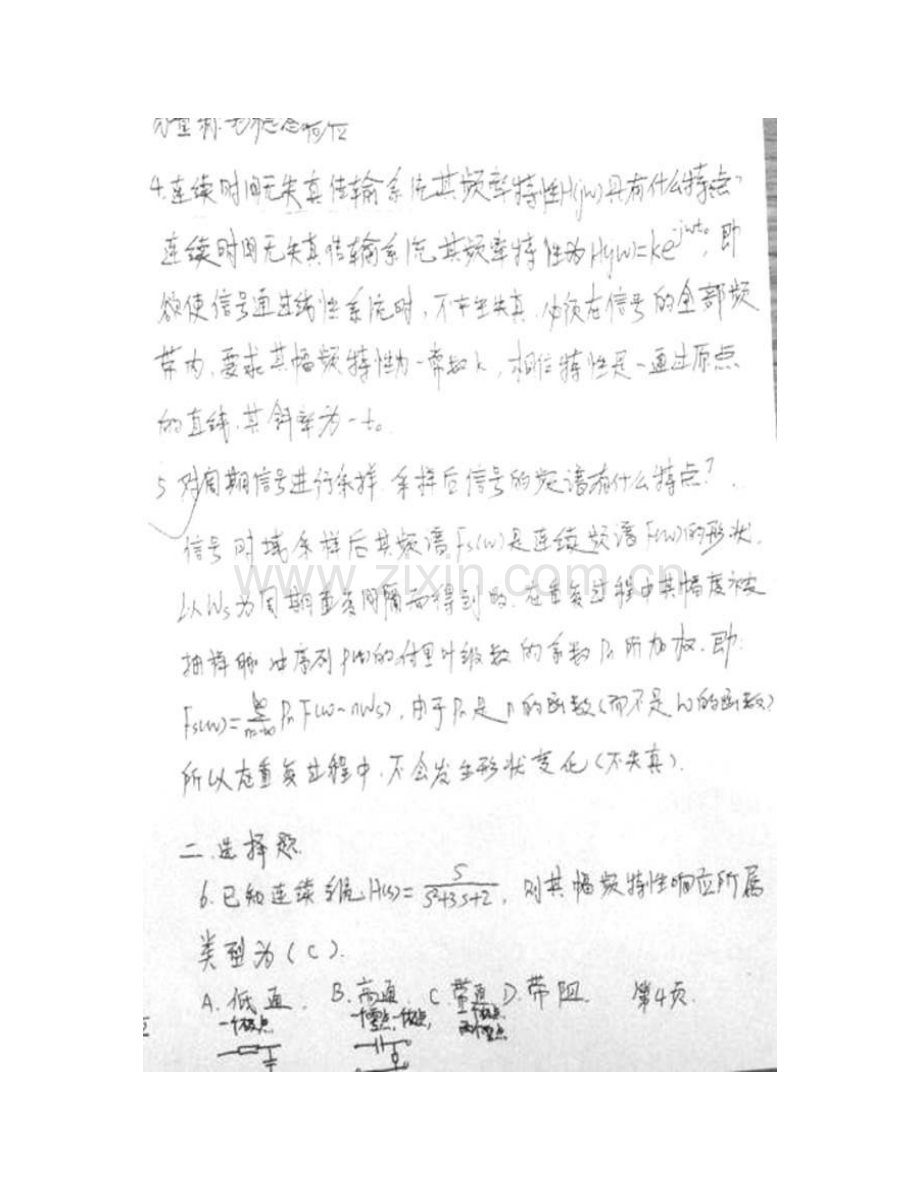 4.连续时间无失真传输系统其频率特性H(jw)具有什么特点?
连续时间无失真传输系统,其频率特性为H(jw)=ke^{-jwt₀},即
欲使信号通过线性系统时,不产生失真,必须在信号的全部频
带内,要求其幅频特性为一常数k,相位特性是一通过原点
的直线,其斜率为-t₀.
5 对周期信号进行采样,采样后信号的频谱有什么特点?
信号时域采样后其频谱Fs(w)是连续频谱F(w)的形状,
以Ws为周期重复间隔而得到的.在重复过程中其幅度被
抽样脉冲序列P(t)的付里叶级数的系数Pn所加权.即:
Fs(w)=∑_{n=-∞}^{∞} Pn F(w-nWs),由于Pn是n的函数(而不是w的函数)
所以在重复过程中,不会发生形状变化(不失真).
www.zixin.com.cn
二.选择题.
6.已知连续系统H(s)=s/(s²+3s+2),则其幅频特性响应所属
类型为(C).
A.低通. B.高通. C.带通 D.带阻. 第4页.
一个极点 一个零点,一个极点,